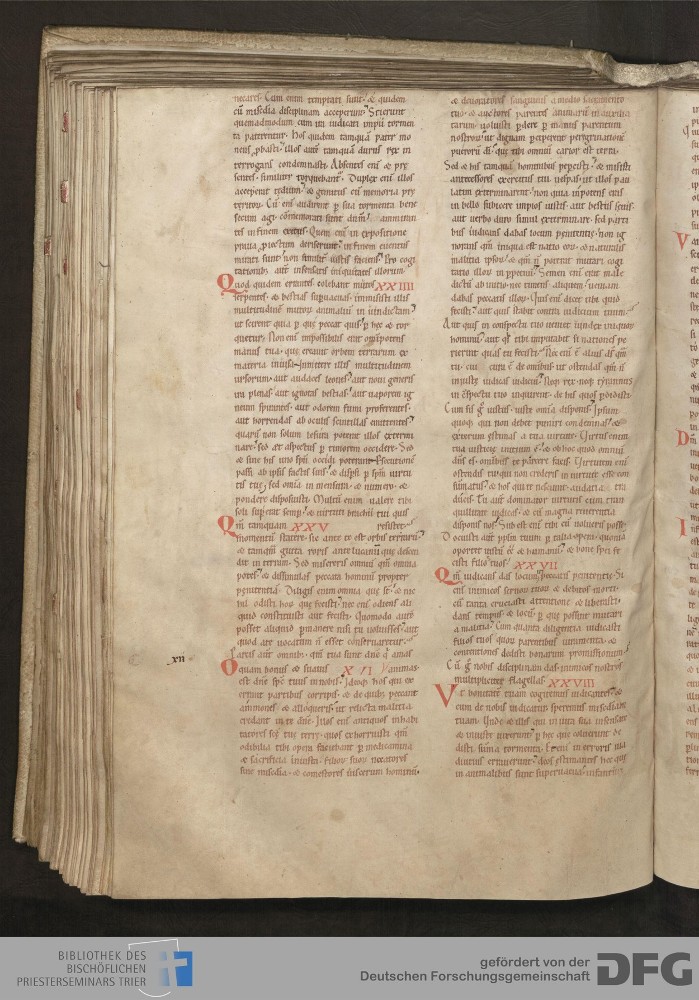 necares. Cum enim temptati sunt. & quidem
cū misc̄dia disciplinam acceperunt. Scierunt
quemadmodum cum ira iudicati impii tormen
ta paterentur. Hos quidem tamquā pater mo
nens p̄basti. illos autē tamquā durus rex in
terrogans condemnasti. Absentes enī & pre
sentes. similiter torquebant᷑. Duplex enī illos
acceperat tędium. & gemitus cū memoria pre
teritorū. Cū enī audirent p̱ sua tormenta bene
secum agi. cōmemorati sunt dn̄m. ammiran
tes in finem exitus. Quem enī in expositione
praua
mirati sunt
tationib; autē insensatis iniquitatis illorum.
Quod quidem errantes. colebant mutos XXIIII
serpentes. & bestias supuacuas. immisisti illis
multitudinē mutorū animaliū in uindictam.
ut scirent quia p̱ quę peccat quis. p̱ hęc & tor
quetur. Non enī impossibilis erat om̄potens
manus tua. quę creauit orbem terrarum ex
materia inuisa. immittere illis multitudinem
ursorum. aut audaces leones. aut noui generis
ira plenas aut ignotas bestias. aut uaporem ig
neum spirantes. aut odorem fumi proferentes.
aut horrendas ab oculis scintillas emittentes.
quarū non solum lesura poterat illos extermi
nare. sed & aspectus p̱ timorem occidere. Sed
& sine his uno spū occidi poterant
passi ab ipsis factis suis. & disp̱si p̱ spm̄ uirtu
tis tuę. sed om̄ia in mensura. & numero. &
pondere disposuisti. Multū enim ualere tibi
soli supererat semp̱. & uirtuti brachii tui quis
Qm̄ tamquam XXV resistet.
momentū staterę. sic ante te est orbis terrarū.
& tamquā gutta roris antelucani quę descen
dit in terram. Sed misereris omniū qm̄ omnia
potes. & dissimulas peccata hominū propter
penitentiā. Diligis enim omnia quę st̄. & nic
hil odisti horū quę fecisti. nec enī odiens ali
quid constituisti aut fecisti. Quomodo autē
posset aliquid p̱manere nisi tu uoluisses. aut
quod a te uocatum n̄ esset conseruaretur.
Parcis autē omnib;. qm̄ tua sunt dn̄e qͥ amas
xii
O quam bonus & suauis XXVI animas.
est dn̄e spc̄ tuus in nobis. Ideoq; hos qui ex
errant partibus corripis. & de quib; peccant
ammones. & alloqueris. ut relicta malitia
credant in te dn̄e. Illos enī antiquos inhabi
tatores scę tuę terrę. quos exhorruisti qm̄
odibilia tibi opera faciebant p̱ medicamina
& sacrificia iniusta. filiorū suorū necatores
sine misc̄dia. & comestores uiscerum hominū.
& deuoratores sanguinis a medio sacramento
tuo. & auctores parentes animarū inauxilia
tarum. uoluisti p̱dere p̱ manus parentum
nostrorū. ut dignam p̱ciperent peregrinationē
puerorū dī. quę tibi omniū carior est terra.
Sed & his tamquā hominibus pepercisti. & misisti
antecessores exercitus tui uespas. ut illos pau
latim exterminarent. non quia inpotens eras
in bello subicere impios iustis. aut bestiis sęuis.
aut uerbo duro simul exterminare. sed parti
bus iudicans dabas locum penitentię. non ig
norans qm̄ iniqua est natio eorū. & naturalis
malitia ipsorū. & qm̄ n̄ poterat mutari cogi
tatio illorū in p̱petuū. Semen enī erat male
dictū ab initio. nec timens aliquem. ueniam
dabas peccatis illorū. Quis enī dicet tibi quid
fecisti. aut quis stabit contra iudicium tuum.
Aut quis in conspectu tuo ueniet uindex iniquorū
hominū. aut qͥs tibi imputabit si nationes pe
rierunt quas tu fecisti. Non enī ē alius ds̄ qm̄
tu. cui cura ē de omnibus ut ostendas qm̄ n̄
iniuste iudicas iudiciū. Neq; rex neq; tyrannus
in c̄spectu tuo inquirent. de his quos p̱didisti.
Cum sis gͦ iustus. iuste omīa disponis. Ipsum
quoq; qui non debet puniri condemnas. &
exterum ęstimas a tua uirtute. Uirtus enim
tua iusticię initium ē. & ob hoc quod omniū
dn̄s es. omnibus te parcere facis. Uirtutem enī
ostendis tu. qui non crederis in uirtute esse con
sumatus. & hos qui te nesciunt. audatia tra
ducis. Tu autē dominator uirtutis cum tran
quillitate iudicas. & cū magna reuerentia
disponis nos. Subest enī tibi cū uolueris posse.
Docuisti autē pplm̄ tuum p̱ talia opera. quoniā
oportet iustū eē & humanū. & bonę spei fe
cisti filios tuos. XXVII
Qm̄ iudicans das locum in peccatis penitentię. Si
enī inimicos seruorū tuorū & debitos morti.
cū tanta cruciasti attentione & liberasti.
dans tempus & locū p̱ quę possint mutari
a malitia. Cum quanta diligentia iudicasti
filios tuos quorū parentibus iuramenta. &
conuentiones dedisti bonarum promissionum.
Cū gͦ nobis disciplinam das. inimicos nostros
multipliciter flagellas. XXVIII
Ut bonitatē tuam cogitemus iudicantes. &
cum de nobis iudicatur speremus misc̄diam
tuam. Unde & illis qui in uita sua insensate
& iniuste uixerunt. p̱ hęc quę coluerunt de
disti sūma tormenta. Etenī in erroris uia
diutius errauerunt. deos ęstimantes hęc quę
in animalibus sunt superuacua. infantiū
BIBLIOTHEK DES
BISCHÖFLICHEN
PRIESTERSEMINARS TRIER
gefördert von der
Deutschen Forschungsgemeinschaft
DFG